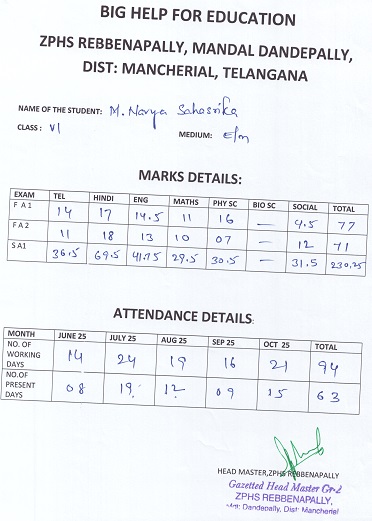 BIG HELP FOR EDUCATION
ZPHS REBBENAPALLY, MANDAL DANDEPALLY,
DIST: MANCHERIAL, TELANGANA
NAME OF THE STUDENT: M. Navya Sahasrika
CLASS : VI
MEDIUM: E/m
MARKS DETAILS:
EXAM TEL HINDI ENG MATHS PHY SC BIO SC SOCIAL TOTAL
F A 1 14 17 14.5 11 16 — 4.5 77
F A 2 11 18 13 10 07 — 12 71
S A1 36.5 69.5 41.75 29.5 30.5 — 31.5 230.25
ATTENDANCE DETAILS:
MONTH JUNE 25 JULY 25 AUG 25 SEP 25 OCT 25 TOTAL
NO. OF WORKING DAYS 14 24 19 16 21 94
NO.OF PRESENT DAYS 08 19 12 09 15 63
HEAD MASTER,ZPHS REBBENAPALLY
Gazetted Head Master Gr-2
ZPHS REBBENAPALLY,
Mdl: Dandepally, Dist: Mancherial